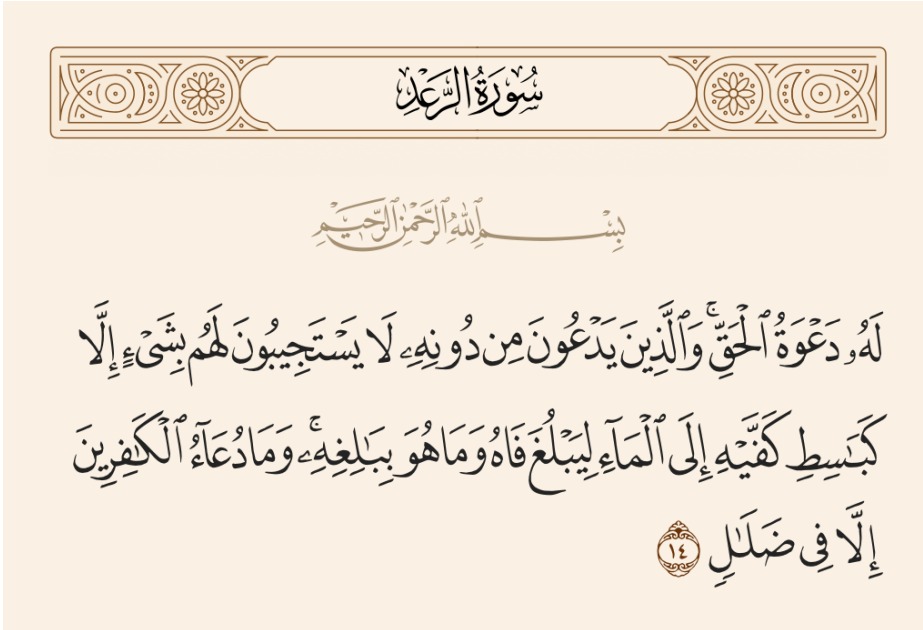 سُورَةُ الرَّعْدِ
بِسْمِ ٱللَّهِ ٱلرَّحْمَٰنِ ٱلرَّحِيمِ
لَهُۥ دَعْوَةُ ٱلْحَقِّ ۚ وَٱلَّذِينَ يَدْعُونَ مِن دُونِهِۦ لَا يَسْتَجِيبُونَ لَهُم بِشَىْءٍ إِلَّا
كَبَـٰسِطِ كَفَّيْهِ إِلَى ٱلْمَآءِ لِيَبْلُغَ فَاهُ وَمَا هُوَ بِبَـٰلِغِهِۦ ۚ وَمَا دُعَآءُ ٱلْكَـٰفِرِينَ
إِلَّا فِى ضَلَـٰلٍ ١٤